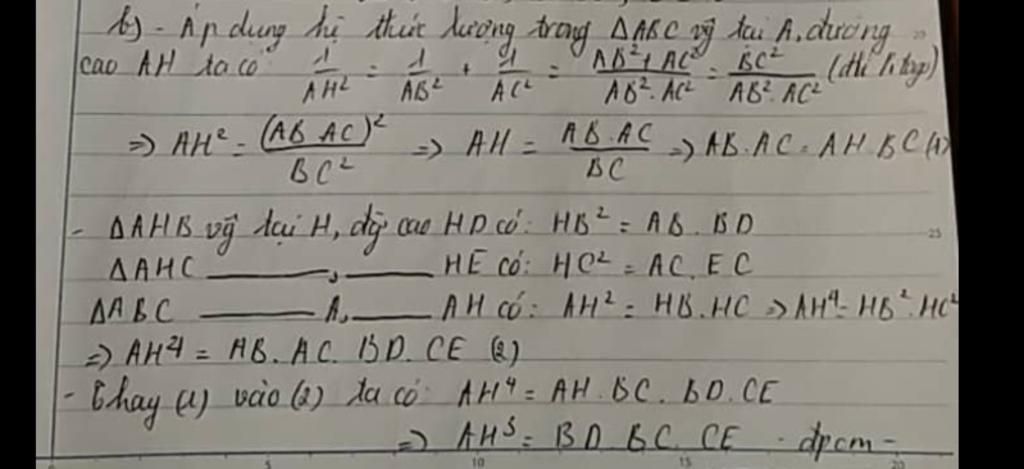 b) - Áp dụng hệ thức lượng trong ΔABC vg̃ tại A, đường
cao AH ta có 1/AH² = 1/AB² + 1/AC² = (AB² + AC²)/(AB². AC²) = BC²/(AB². AC²)
=> AH² = (AB AC)²/BC² => AH = AB.AC/BC => AB.AC = AH.BC (1)
- ΔAHB vg̃ tại H, đg̃ cao HD có: HB² = AB. BD
25
ΔAHC ———, ——— HE có: HC² = AC. EC
ΔABC ——— A, ——— AH có: AH² = HB.HC => AH⁴ = HB². HC²
=> AH⁴ = AB. AC. BD. CE (2)
- Thay (1) vào (2) ta có: AH⁴ = AH. BC. BD. CE
=> AH³ = BD BC. CE - đpcm -
5 10 15 20